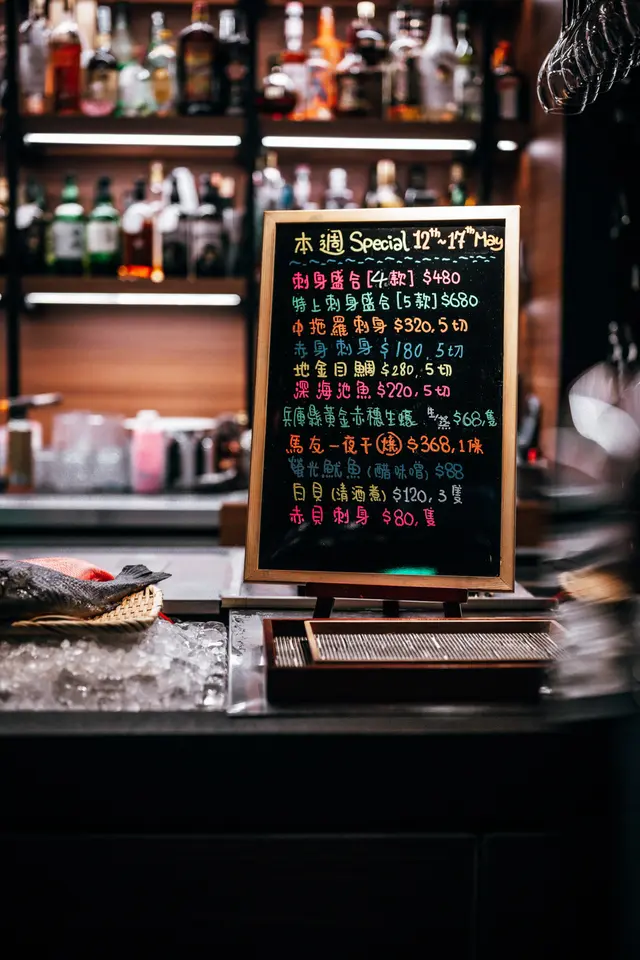 本週 Special 12th~17th May
刺身盛合 [4款] $480
特上刺身盛合 [5款] $680
中拖羅刺身 $320, 5切
赤身刺身 $180, 5切
地金目鯛 $280, 5切
深海池魚 $220, 5切
兵庫縣黃金赤穗生蠔 生/蒸 $68,隻
馬友一夜干(燒) $368,1條
螢光魷魚 (醋味噌) $88
白貝 (清酒煮) $120, 3隻
赤貝刺身 $80,隻